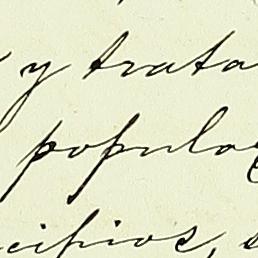 y trata
popula
cipios, s